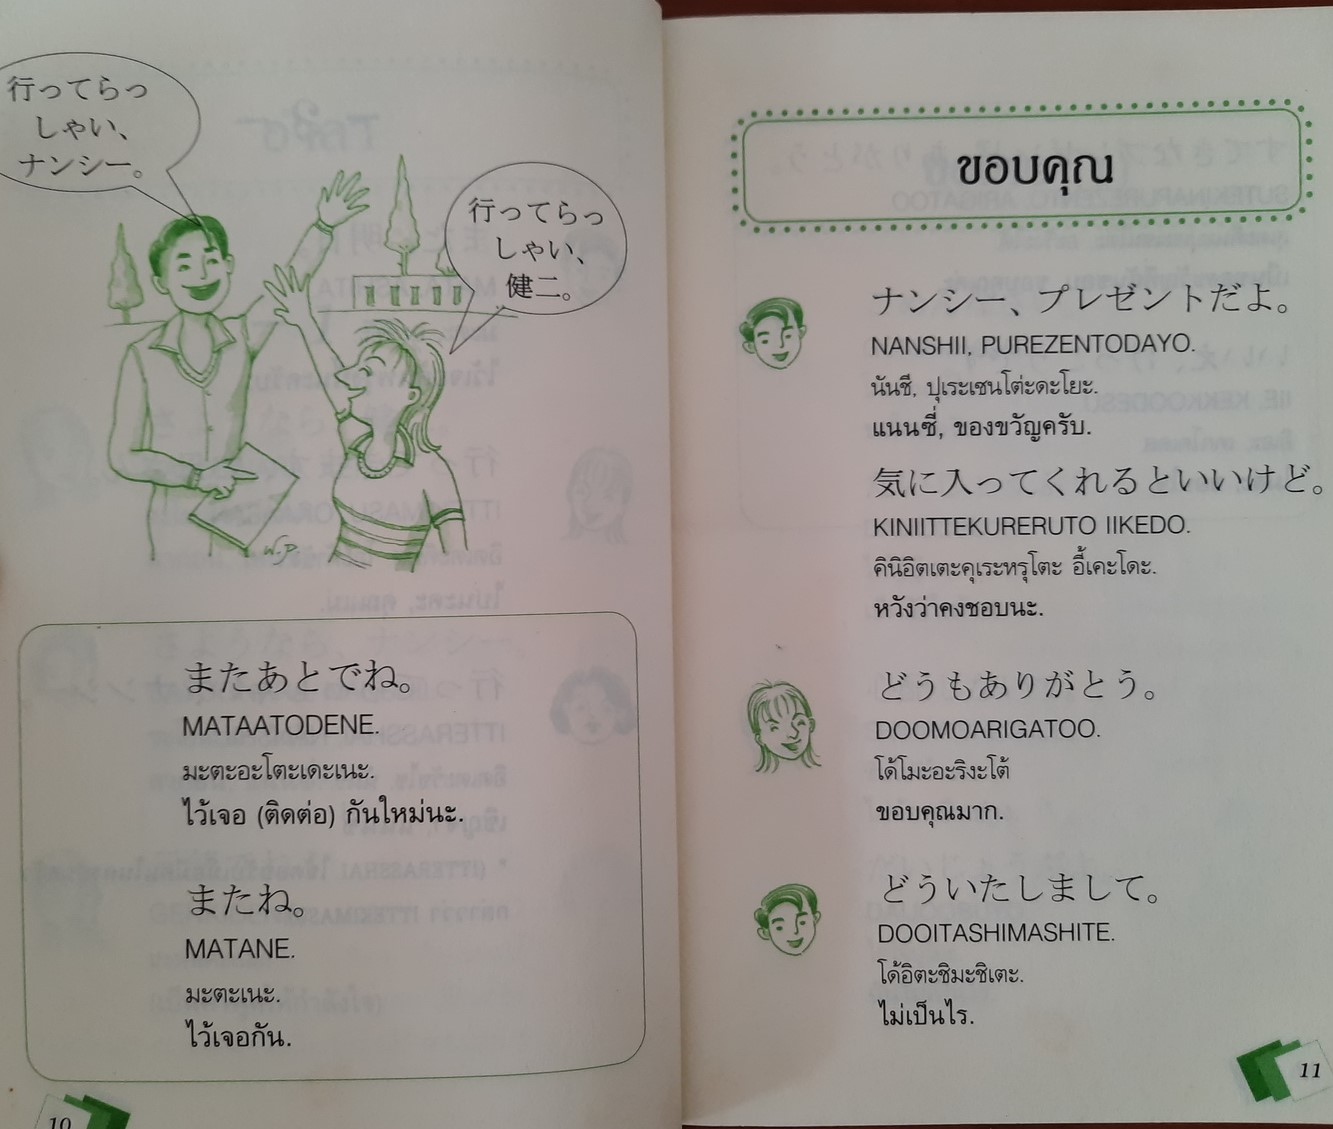 行ってらっ
しゃい、
ナンシー。
行ってらっ
しゃい、
健二。
またあとでね。
MATAATODENE.
มะตะอะโตะเดะเนะ.
ไว้เจอ (ติดต่อ) กันใหม่นะ.
またね。
MATANE.
มะตะเนะ.
ไว้เจอกัน.
10
ขอบคุณ
ナンシー、プレゼントだよ。
NANSHII, PUREZENTODAYO.
นันชี, ปุเระเซนโต่ะดะโยะ.
แนนซี่, ของขวัญครับ.
気に入ってくれるといいけど。
KINIITTEKURERUTO IIKEDO.
คินิอิตเตะคุเระหรุโตะ อี้เคะโดะ.
หวังว่าคงชอบนะ.
どうもありがとう。
DOOMOARIGATOO.
โด้โมะอะริงะโต้
ขอบคุณมาก.
どういたしまして。
DOOITASHIMASHITE.
โด้อิตะชิมะชิเตะ.
ไม่เป็นไร.
11